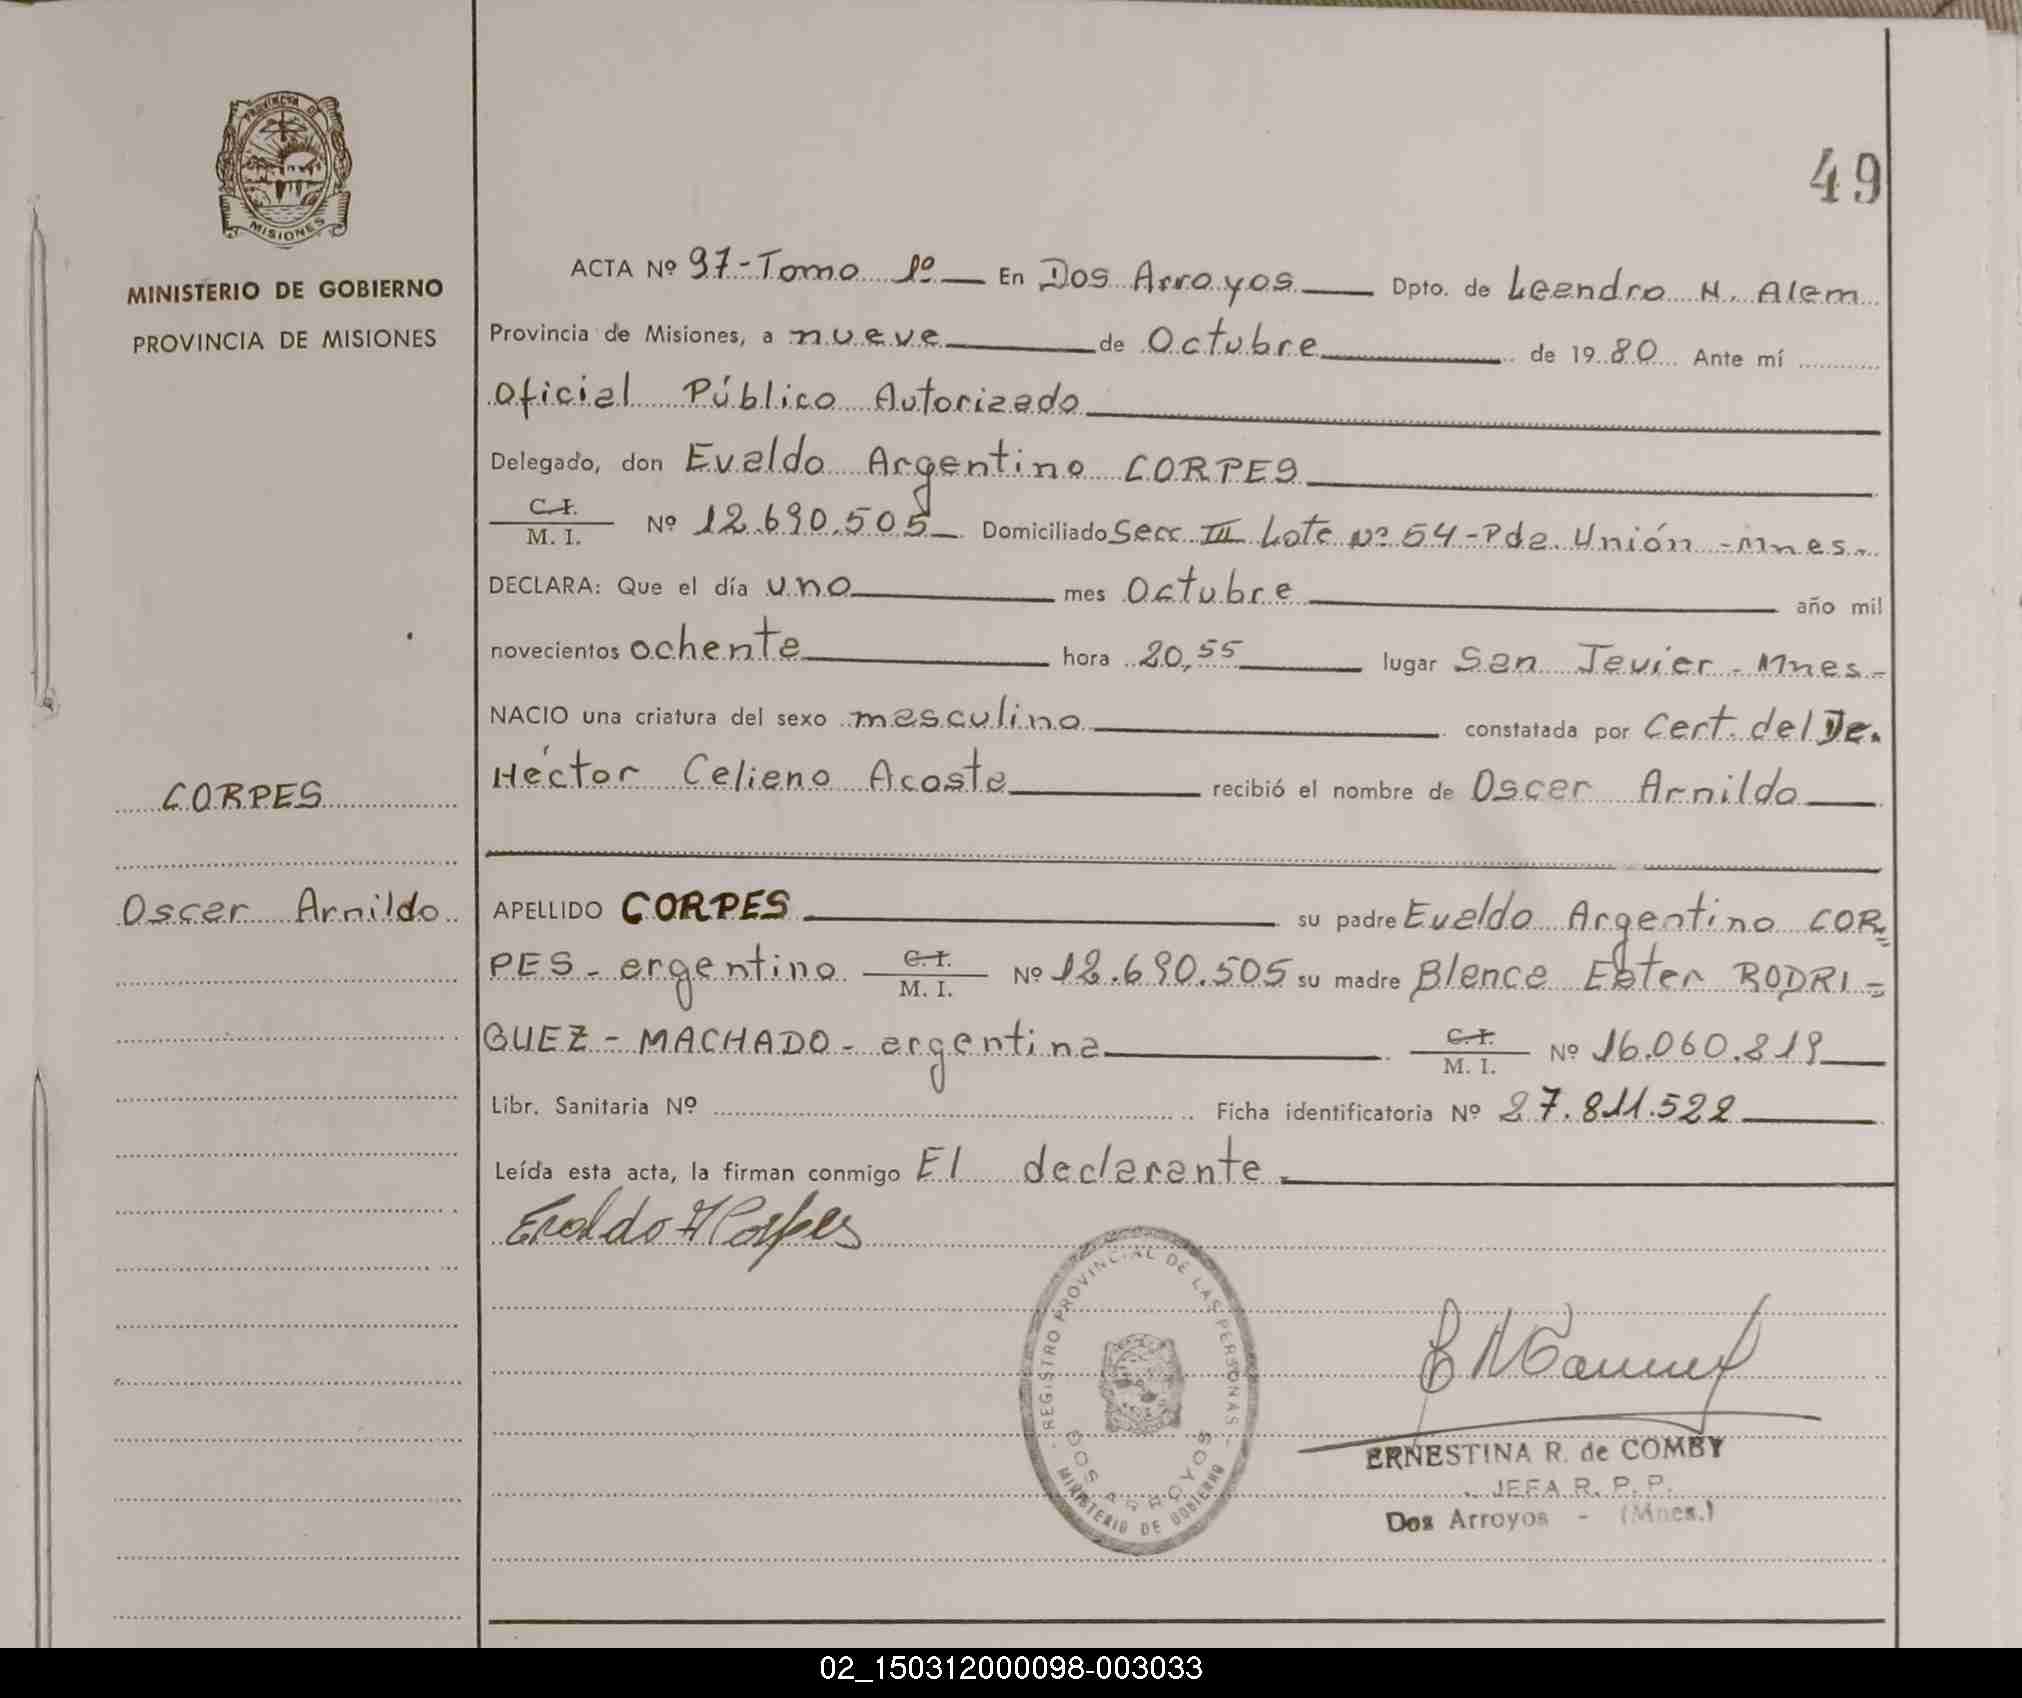 PROVINCIA DE
MISIONES
MINISTERIO DE GOBIERNO
PROVINCIA DE MISIONES
49
ACTA Nº 97-Tomo 1º En Dos Arroyos Dpto. de Leandro N. Alem
Provincia de Misiones, a nueve de Octubre de 1980 Ante mí
Oficial Público Autorizado
Delegado, don Evaldo Argentino CORPES
C.I.
M. I. Nº 12.690.505 Domiciliado Secc III Lote Nº 54-Pda. Unión -Mnes.
DECLARA: Que el día uno mes Octubre año mil
novecientos ochenta hora 20,55 lugar San Javier - Mnes-
NACIO una criatura del sexo masculino constatada por Cert. del
Héctor Celieno Acosta recibió el nombre de Oscar Arnildo
CORPES
Oscar Arnildo
APELLIDO CORPES su padre Evaldo Argentino COR=
PES - argentino C.I. M. I. Nº 12.690.505 su madre Blanca Ester RODRI=
GUEZ - MACHADO - argentina C.I. M. I. Nº 16.060.819
Libr. Sanitaria Nº Ficha identificatoria Nº 27.811.522
Leída esta acta, la firman conmigo El declarante
Evaldo A Corpes
REGISTRO PROVINCIAL DE LAS PERSONAS
DOS ARROYOS
MINISTERIO DE GOBIERNO
ERNESTINA R. de COMBY
JEFA R. P. P.
Dos Arroyos - (Mnes.)
02_150312000098-003033